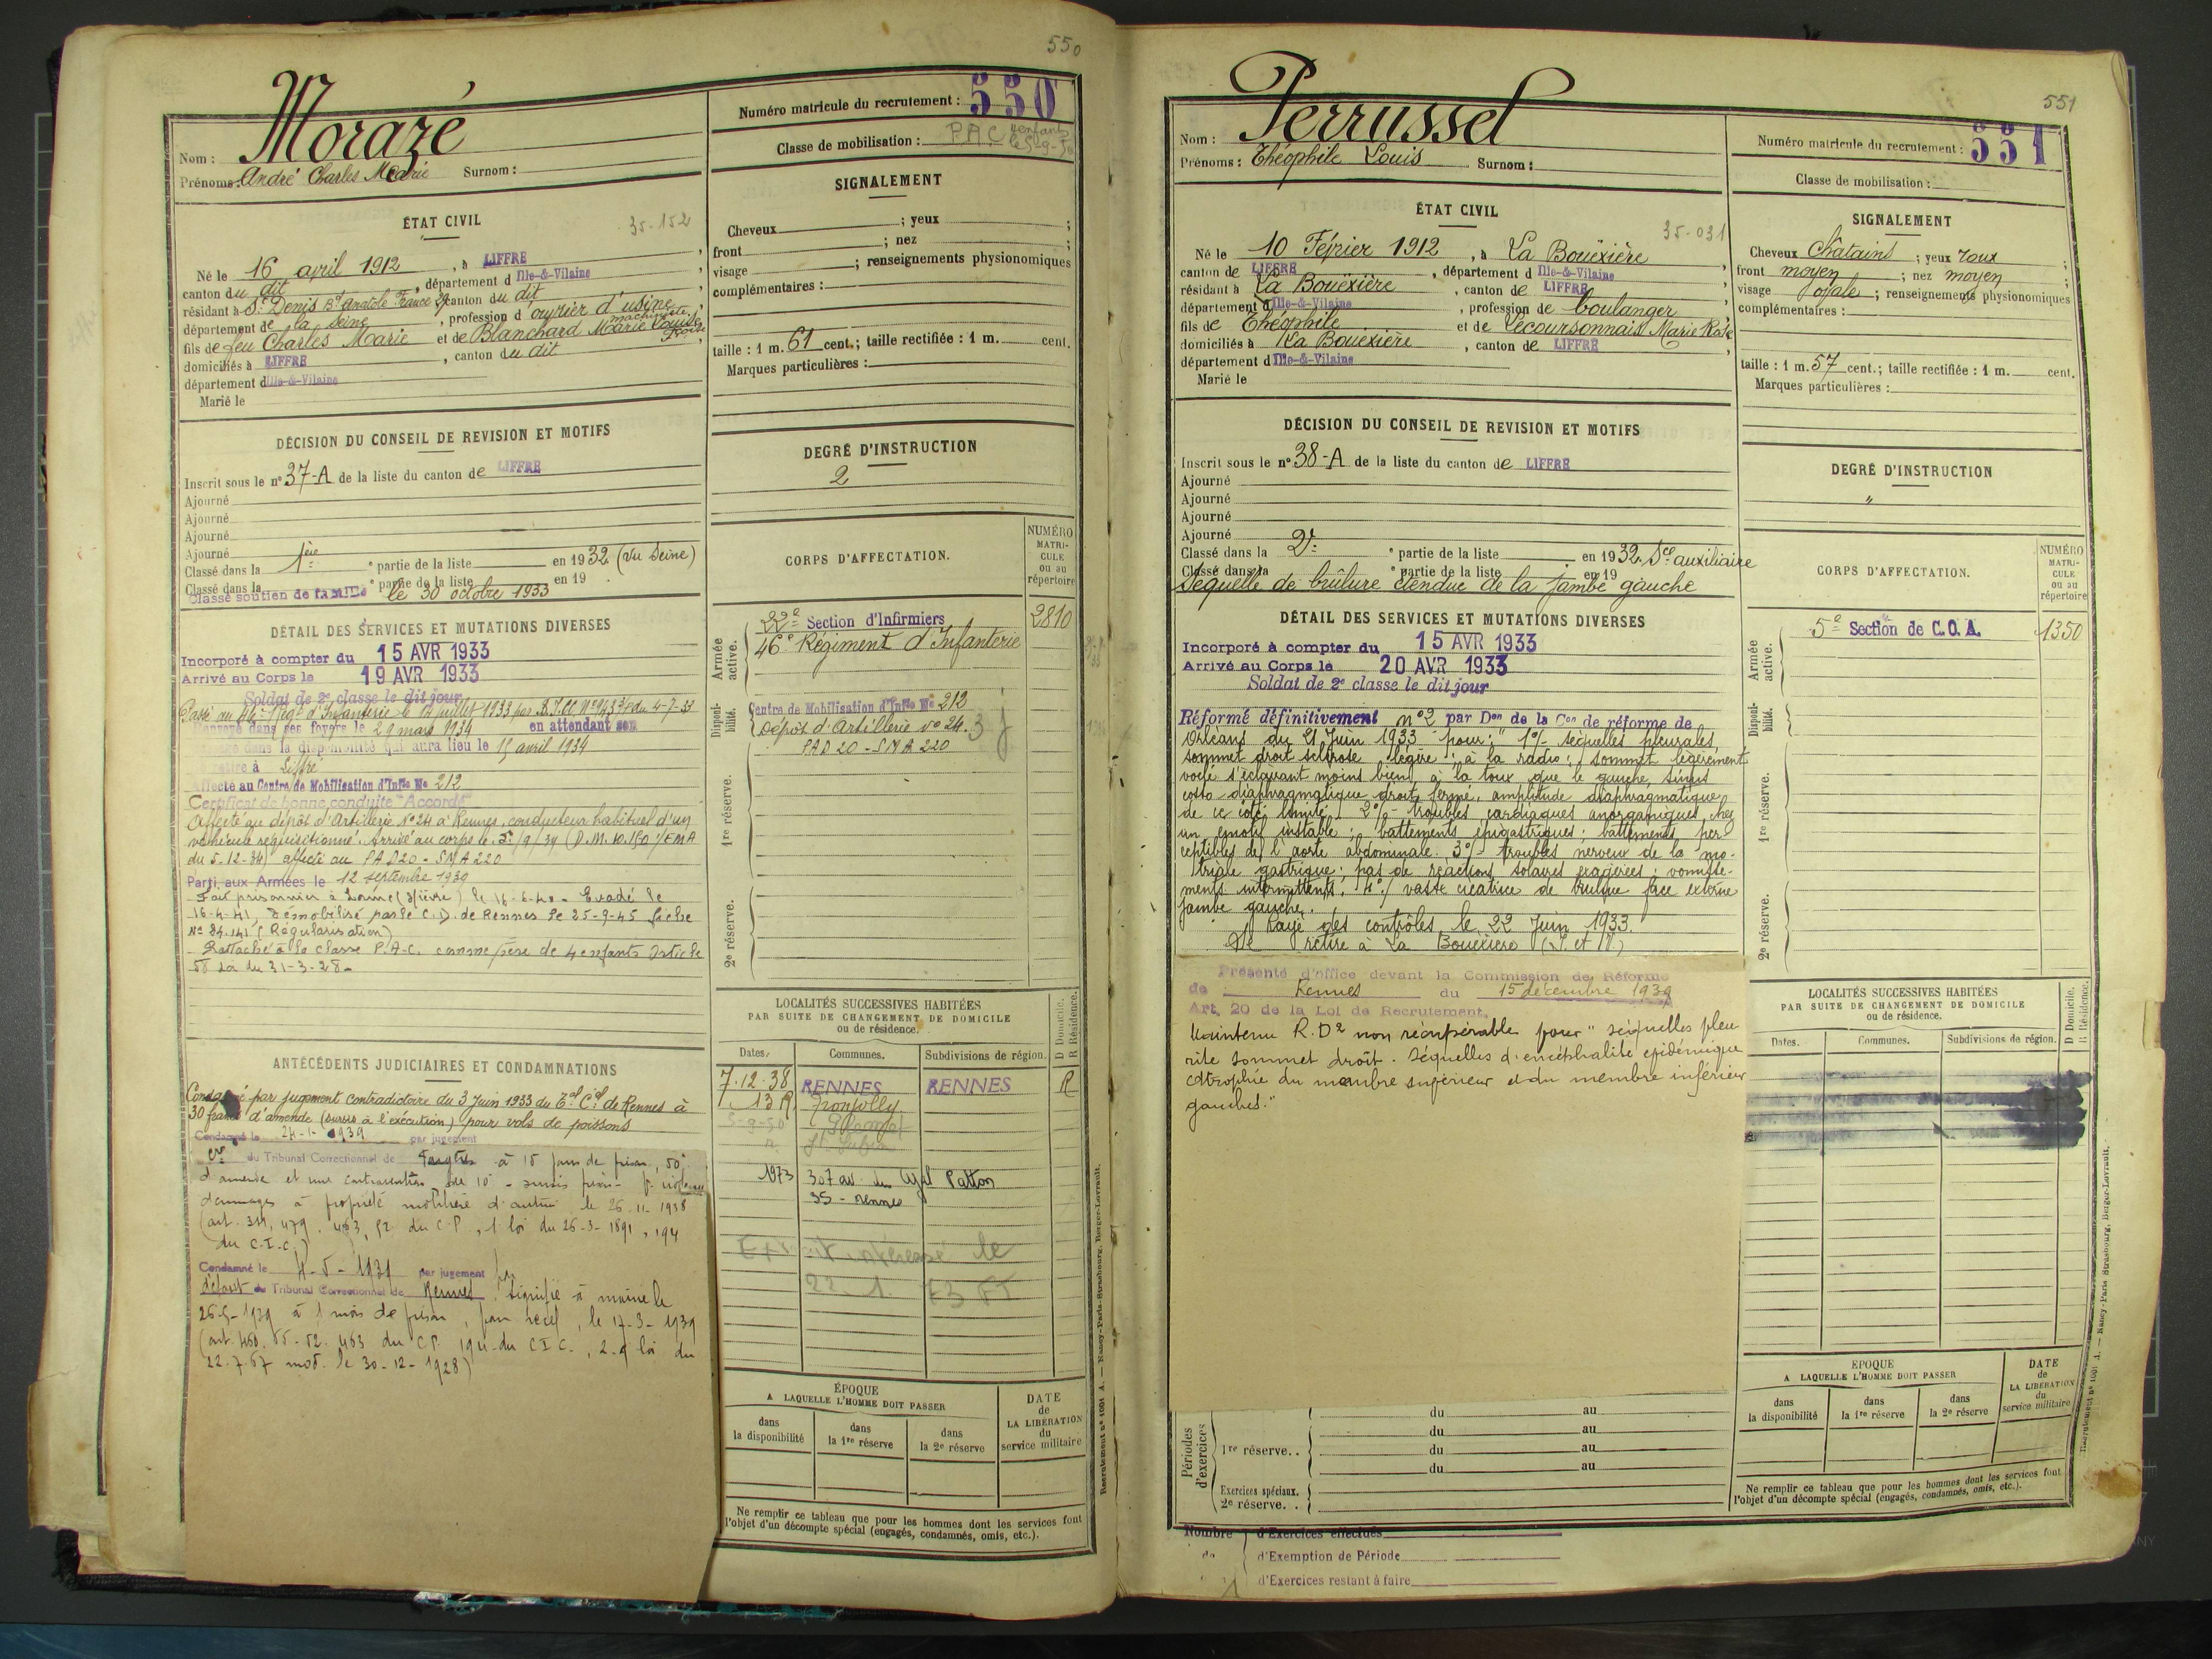 550
Morazé
Nom :
Prénoms : André Charles Marie Surnom :
Numéro matricule du recrutement : 550
Classe de mobilisation : P.A.C
ÉTAT CIVIL
35-152
Né le 16 avril 1912, à LIFFRE
canton du dit, département d Ille-&-Vilaine
résidant à St Denis Bd Anatole France, canton du dit
département de la Seine, profession d'ouvrier d'usine
machiniste
fils de feu Charles Marie et de Blanchard Marie Louise
Rose
domiciliés à LIFFRE, canton du dit
département d Ille-&-Vilaine
Marié le
SIGNALEMENT
Cheveux ; yeux ;
front ; nez ;
visage ; renseignements physionomiques
complémentaires :
taille : 1 m. 61 cent.; taille rectifiée : 1 m. cent.
Marques particulières :
DÉCISION DU CONSEIL DE REVISION ET MOTIFS
Inscrit sous le n° 37-A de la liste du canton de LIFFRE
Ajourné
Ajourné
Ajourné
Ajourné
Classé dans la 1ère partie de la liste en 1932 (Vu Seine)
Classé dans la partie de la liste en 19
Classé soutien de famille le 30 octobre 1933
DEGRÉ D'INSTRUCTION
2
DÉTAIL DES SERVICES ET MUTATIONS DIVERSES
Incorporé à compter du 15 AVR 1933
Arrivé au Corps le 19 AVR 1933
Soldat de 2e classe le dit jour
Passé au 46e Régt d'Infanterie le 14 juillet 1933 par
Renvoyé dans ses foyers le 29 mars 1934 en attendant son
dans la disponibilité qui aura lieu le 15 avril 1934
retire à Liffré
Affecté au Centre de Mobilisation d'Infie No 212
Certificat de bonne conduite "Accordé"
Affecté au dépôt d'Artillerie N° 24 à Rennes, conducteur habituel d'un
véhicule réquisitionné. Arrivé au corps le
du 5-12-34) affecté au PAD 20 - SMA 220
Parti aux Armées le 12 septembre 1939
Fait prisonnier à le 16-6-40 - Evadé le
16-4-41, démobilisé par le C.D. de Rennes le 25-9-45 fiche
N° 84.141 (Régularisation)
Rattaché à la classe P.A.C. comme père de 4 enfants Article
58 Loi du 31-3-28 -
CORPS D'AFFECTATION.
NUMÉRO MATRICULE ou au répertoire
Armée active.
22e Section d'Infirmiers 2810
46e Régiment d'Infanterie
Disponibilité.
Centre de Mobilisation d'Infie No 212
Dépôt d'Artillerie N° 24.
PAD 20 - SMA 220
1re réserve.
2e réserve.
ANTÉCÉDENTS JUDICIAIRES ET CONDAMNATIONS
Condamné par jugement contradictoire du 3 Juin 1933 du Tal Cel de Rennes à
30 francs d'amende (sursis à l'exécution) pour vols de poissons
Condamné le 24-1-1939 par jugement
du Tribunal Correctionnel de à 15 jours de prison, 50
d'amende et une contravention de 10
dommages à propriété mobilière d'autrui le 26-11-1938
(art. 311, 479, 463, 52 du C.P, 1 loi du 26-3-1891, 194
du C.I.C)
Condamné le 4-5-1939 par jugement par
défaut du Tribunal Correctionnel de Rennes, signifié à mairie le
26-5-1939 à 1 mois de prison, pour recel, le 17-3-1939
(art. 460, 55-52, 463 du C.P. 194 du C.I.C., 2-9 loi du
22-7-67 mod. le 30-12-1928)
LOCALITÉS SUCCESSIVES HABITÉES
PAR SUITE DE CHANGEMENT DE DOMICILE
ou de résidence.
Dates. Communes. Subdivisions de région. D Domicile. R Résidence.
7.12.38 RENNES RENNES R
1973 307 av. du Gal Patton
35 - Rennes
22. 1. 73
ÉPOQUE
A LAQUELLE L'HOMME DOIT PASSER
dans la disponibilité
dans la 1re réserve
dans la 2e réserve
DATE de LA LIBÉRATION du service militaire
Ne remplir ce tableau que pour les hommes dont les services font
l'objet d'un décompte spécial (engagés, condamnés, omis, etc.).
Recrutement n° 1001 A. — Nancy-Paris-Strasbourg, Berger-Levrault.
551
Perrussel
Nom :
Prénoms : Théophile Louis Surnom :
Numéro matricule du recrutement : 551
Classe de mobilisation :
ÉTAT CIVIL
35-031
Né le 10 Février 1912, à La Bouëxière
canton de LIFFRE, département d Ille-&-Vilaine
résidant à La Bouëxière, canton de LIFFRE
département d Ille-&-Vilaine, profession de boulanger
fils de Théophile et de Lecoursonnais Marie Rose
domiciliés à La Bouëxière, canton de LIFFRE
département d Ille-&-Vilaine
Marié le
SIGNALEMENT
Cheveux Chatains ; yeux roux ;
front moyen ; nez moyen ;
visage ovale ; renseignements physionomiques
complémentaires :
taille : 1 m. 57 cent.; taille rectifiée : 1 m. cent.
Marques particulières :
DÉCISION DU CONSEIL DE REVISION ET MOTIFS
Inscrit sous le n° 38-A de la liste du canton de LIFFRE
Ajourné
Ajourné
Ajourné
Ajourné
Classé dans la 2e partie de la liste en 1932 Sce auxiliaire
Classé dans la partie de la liste en 19
Séquelle de brûlure étendue de la jambe gauche
DEGRÉ D'INSTRUCTION
"
DÉTAIL DES SERVICES ET MUTATIONS DIVERSES
Incorporé à compter du 15 AVR 1933
Arrivé au Corps le 20 AVR 1933
Soldat de 2e classe le dit jour
Réformé définitivement n°2 par Don de la Con de réforme de
Orléans du 21 Juin 1933 pour : "1°/- séquelles pleurales,
sommet droit sclérose légère ; à la radio : sommet légèrement
voilé s'éclairant moins bien à la toux que le gauche, sinus
costo diaphragmatique droit fermé, amplitude diaphragmatique
de ce côté limité. 2°/- troubles cardiaques anorganiques chez
un émotif instable : battements épigastriques ; battements per-
ceptibles de l'aorte abdominale. 3°/- troubles nerveux de la mo-
trice gastrique ; pas de réactions solaires exagérées ; vomisse-
ments intermittents. 4°/ vaste cicatrice de brûlure face externe
jambe gauche.
Rayé des contrôles le 22 Juin 1933.
Se retire à La Bouëxière (I. et V.)
Présenté d'office devant la Commission de Réforme
de Rennes du 15 décembre 1939
Art. 20 de la Loi de Recrutement.
Maintenu R.D2 non récupérable pour "séquelles pleu
rite sommet droit. Séquelles d'encéphalite épidémique
atrophie du membre supérieur et du membre inférieur
gauches."
CORPS D'AFFECTATION.
NUMÉRO MATRICULE ou au répertoire
Armée active.
5e Section de C.O.A. 1350
Disponibilité.
1re réserve.
2e réserve.
LOCALITÉS SUCCESSIVES HABITÉES
PAR SUITE DE CHANGEMENT DE DOMICILE
ou de résidence.
Dates. Communes. Subdivisions de région. D Domicile. R Résidence.
Périodes d'exercices
1re réserve. .
du au
du au
du au
du au
Exercices spéciaux.
2e réserve. .
ÉPOQUE
A LAQUELLE L'HOMME DOIT PASSER
dans la disponibilité
dans la 1re réserve
dans la 2e réserve
DATE de LA LIBÉRATION du service militaire
Ne remplir ce tableau que pour les hommes dont les services font
l'objet d'un décompte spécial (engagés, condamnés, omis, etc.).
Nombre d'Exercices effectués
de d'Exemption de Période
d'Exercices restant à faire
Recrutement n° 1001 A. — Nancy-Paris-Strasbourg, Berger-Levrault.